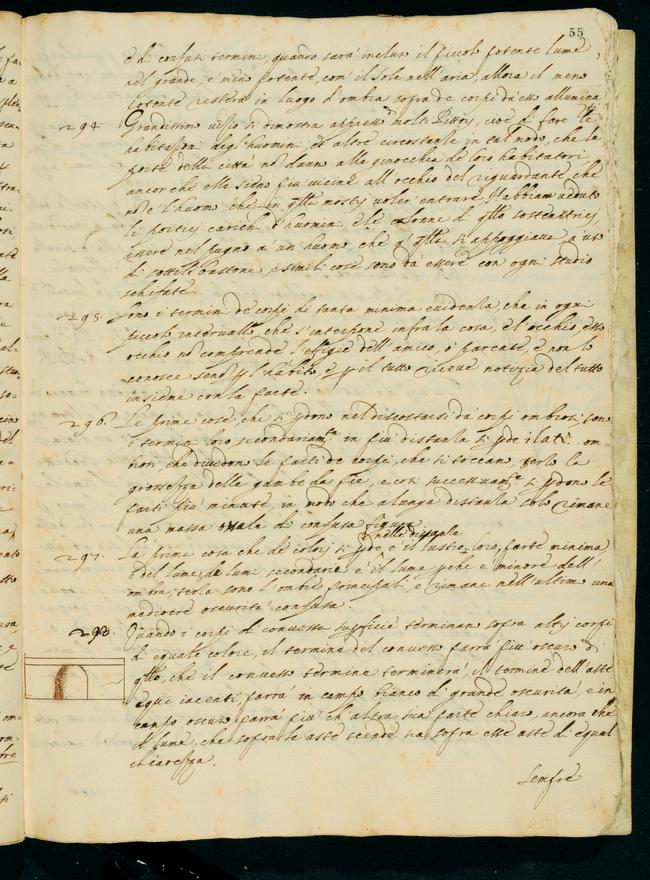 55
e di confusi termini, quando sarà incluso il piccolo potente lume
nel grande, e men potente, com'il Sole nell'aria, allora il meno
potente resterà in luogo d'ombra sopra de corpi da esso allumina
294. Grandissimo vizio si dimostra appresso molti Pittori, cioè di fare le
habitazioni degl'huomini, et altre circostanze in tal modo, che le
porte delle città no danno alle ginocchia de loro habitatori
ancorche elle sieno più vicine all'occhio del riguardante, che
no è l'huomo, che in qlle mostri voler entrare. Habbiam veduto
li portici carichi d'huomini, e le colonne di qlli sostenitrici
essere nel pugno a un huomo, che a qlle si appoggiava, a uso
di sottile bastone, e simili cose sono da essere con ogni studio
schifate.
295. Sono i termini de corpi di tanta minima evidenza, che in ogni
piccolo intervallo, che s'interpone infra la cosa, e l'occhio, esso
occhio no comprende l'effigie dell'amico, o parente, e non lo
conosce se no p l'habito, e p il tutto riceve notizia del tutto
insieme con la parte.
296. Le prime cose, che si pdono nel discostarsi da corpi ombrosi sono
i termini loro secondariamte in più distanza si pde i lati om-
brosi, che dividono le parti de corpi, che si toccano, terzo la
grossezza delle gambe da pie, e così successivamte si pdono le
parti più minute, in modo che a lunga distanza solo rimane
una massa ovale di confusa figura.
nella distanza
297. La prima cosa che de colori si pde, è il lustro loro, parte minima,
e del lume, de lumi secondaria è il lume pche è minore dell'
ombra, terza sono l'ombre principali, e rimane nell'ultimo una
mediocre oscurità confusa.
298. Quando i corpi di convessa supficie terminano sopra altri corpi
di eguale colore, il termine del convesso parrà più oscuro di
qllo, che il convesso termine terminerà, il termine dell'aste
equi iacenti, parrà in campo bianco di grande oscurità, e in
campo oscuro parrà più ch'altra sua parte chiaro, ancora che
il lume, che sopra le aste scende sia sopra esse aste di equal
chiarezza.
Sempre